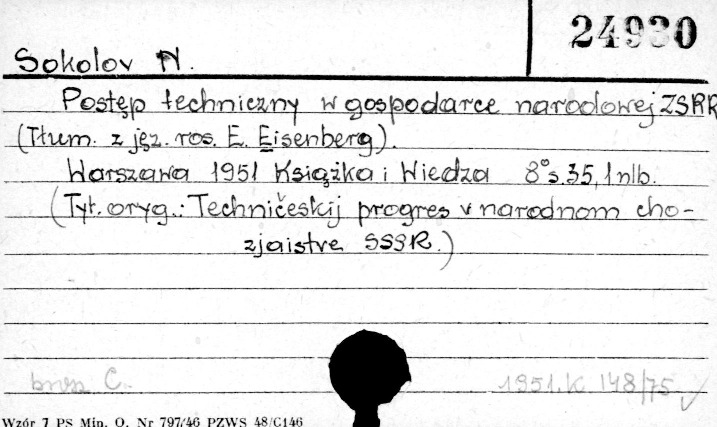 24930
Sokolov N.
Postęp techniczny w gospodarce narodowej ZSRR
(Tłum. z jęz. ros. E. Eisenberg).
Warszawa 1951 Książka i Wiedza 8° s. 35, 1 nlb.
(Tyt. oryg.: Techničeskij progres v narodnom cho-
zjaistve SSSR.)
C.
1951.K 148/75
Wzór 7 PS Min. O. Nr 797/46 PZWS 48/C146